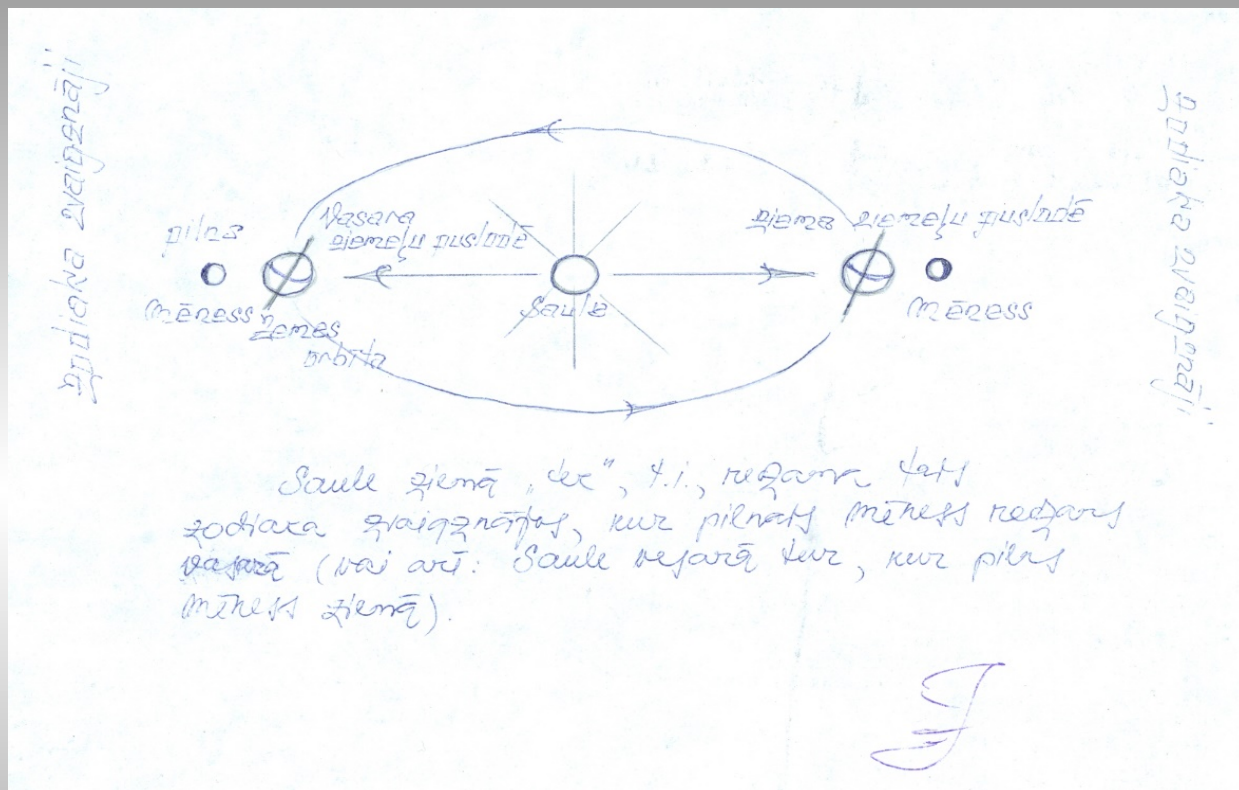 Zodiaka zvaigznāji
pilns
Mēness
Vasara
ziemeļu puslodē
Zemes
orbīta
Saule
ziema ziemeļu puslodē
Mēness
Zodiaka zvaigznāji
Saule ziemā „tek”, t.i., redzama tais
zodiaka zvaigznājos, kur pilnais mēness redzams
vasarā (vai arī: Saule vasarā tur, kur pilns
mēness ziemā).